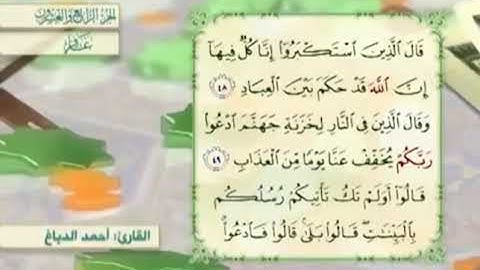 الجزء الرابع والعشرون
غافر
قَالَ الَّذِينَ اسْتَكْبَرُوا إِنَّا كُلٌّ فِيهَا
إِنَّ اللَّهَ قَدْ حَكَمَ بَيْنَ الْعِبَادِ ﴿٤٨﴾
وَقَالَ الَّذِينَ فِي النَّارِ لِخَزَنَةِ جَهَنَّمَ ادْعُوا
رَبَّكُمْ يُخَفِّفْ عَنَّا يَوْمًا مِّنَ الْعَذَابِ ﴿٤٩﴾
قَالُوا أَوَلَمْ تَكُ تَأْتِيكُمْ رُسُلُكُم
بِالْبَيِّنَاتِ ۖ قَالُوا بَلَىٰ ۚ قَالُوا فَادْعُوا ۗ
القارئ: أحمد الدباغ